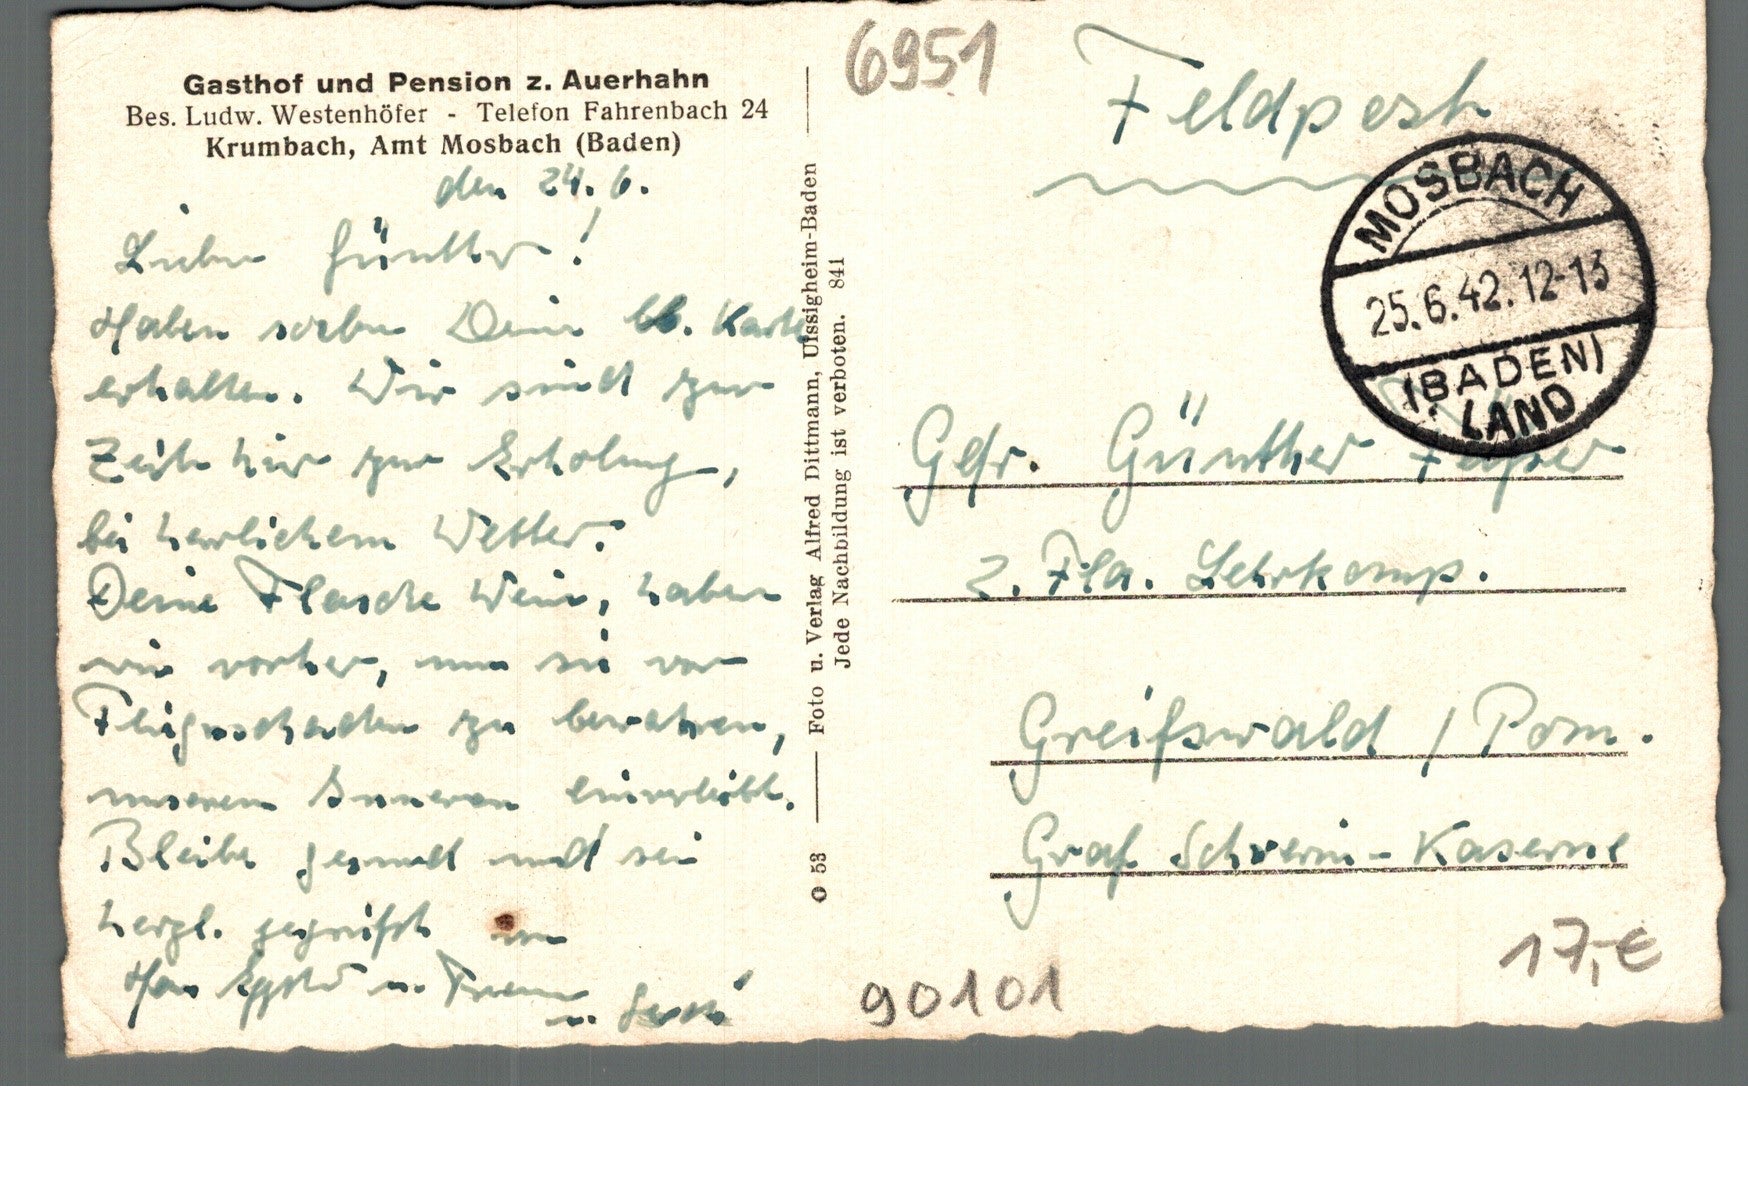 Gasthof und Pension z. Auerhahn
Bes. Ludw. Westenhöfer - Telefon Fahrenbach 24
Krumbach, Amt Mosbach (Baden)
den 24. 6.
Lieber Günther!
Haben soeben Deine lb. Karte
erhalten. Wir sind zur
Zeit hier zur Erholung,
bei herrlichem Wetter.
Deine Flasche Wein, haben
wir vorher, um sie vor
Fliegerschaden zu bewahren,
unserem Inneren einverleibt.
Bleibe gesund und sei
herzl. gegrüßt von
u.
u.
Foto u. Verlag Alfred Dittmann, Uissigheim-Baden
Jede Nachbildung ist verboten. 841
O 53
6951
Feldpost
MOSBACH
25.6.42.12-13
(BADEN)
LAND
Gefr. Günther
2. Fla. Lehrkomp.
Greifswald / Pom.
Graf Schwerin-Kaserne
17,-€
90101